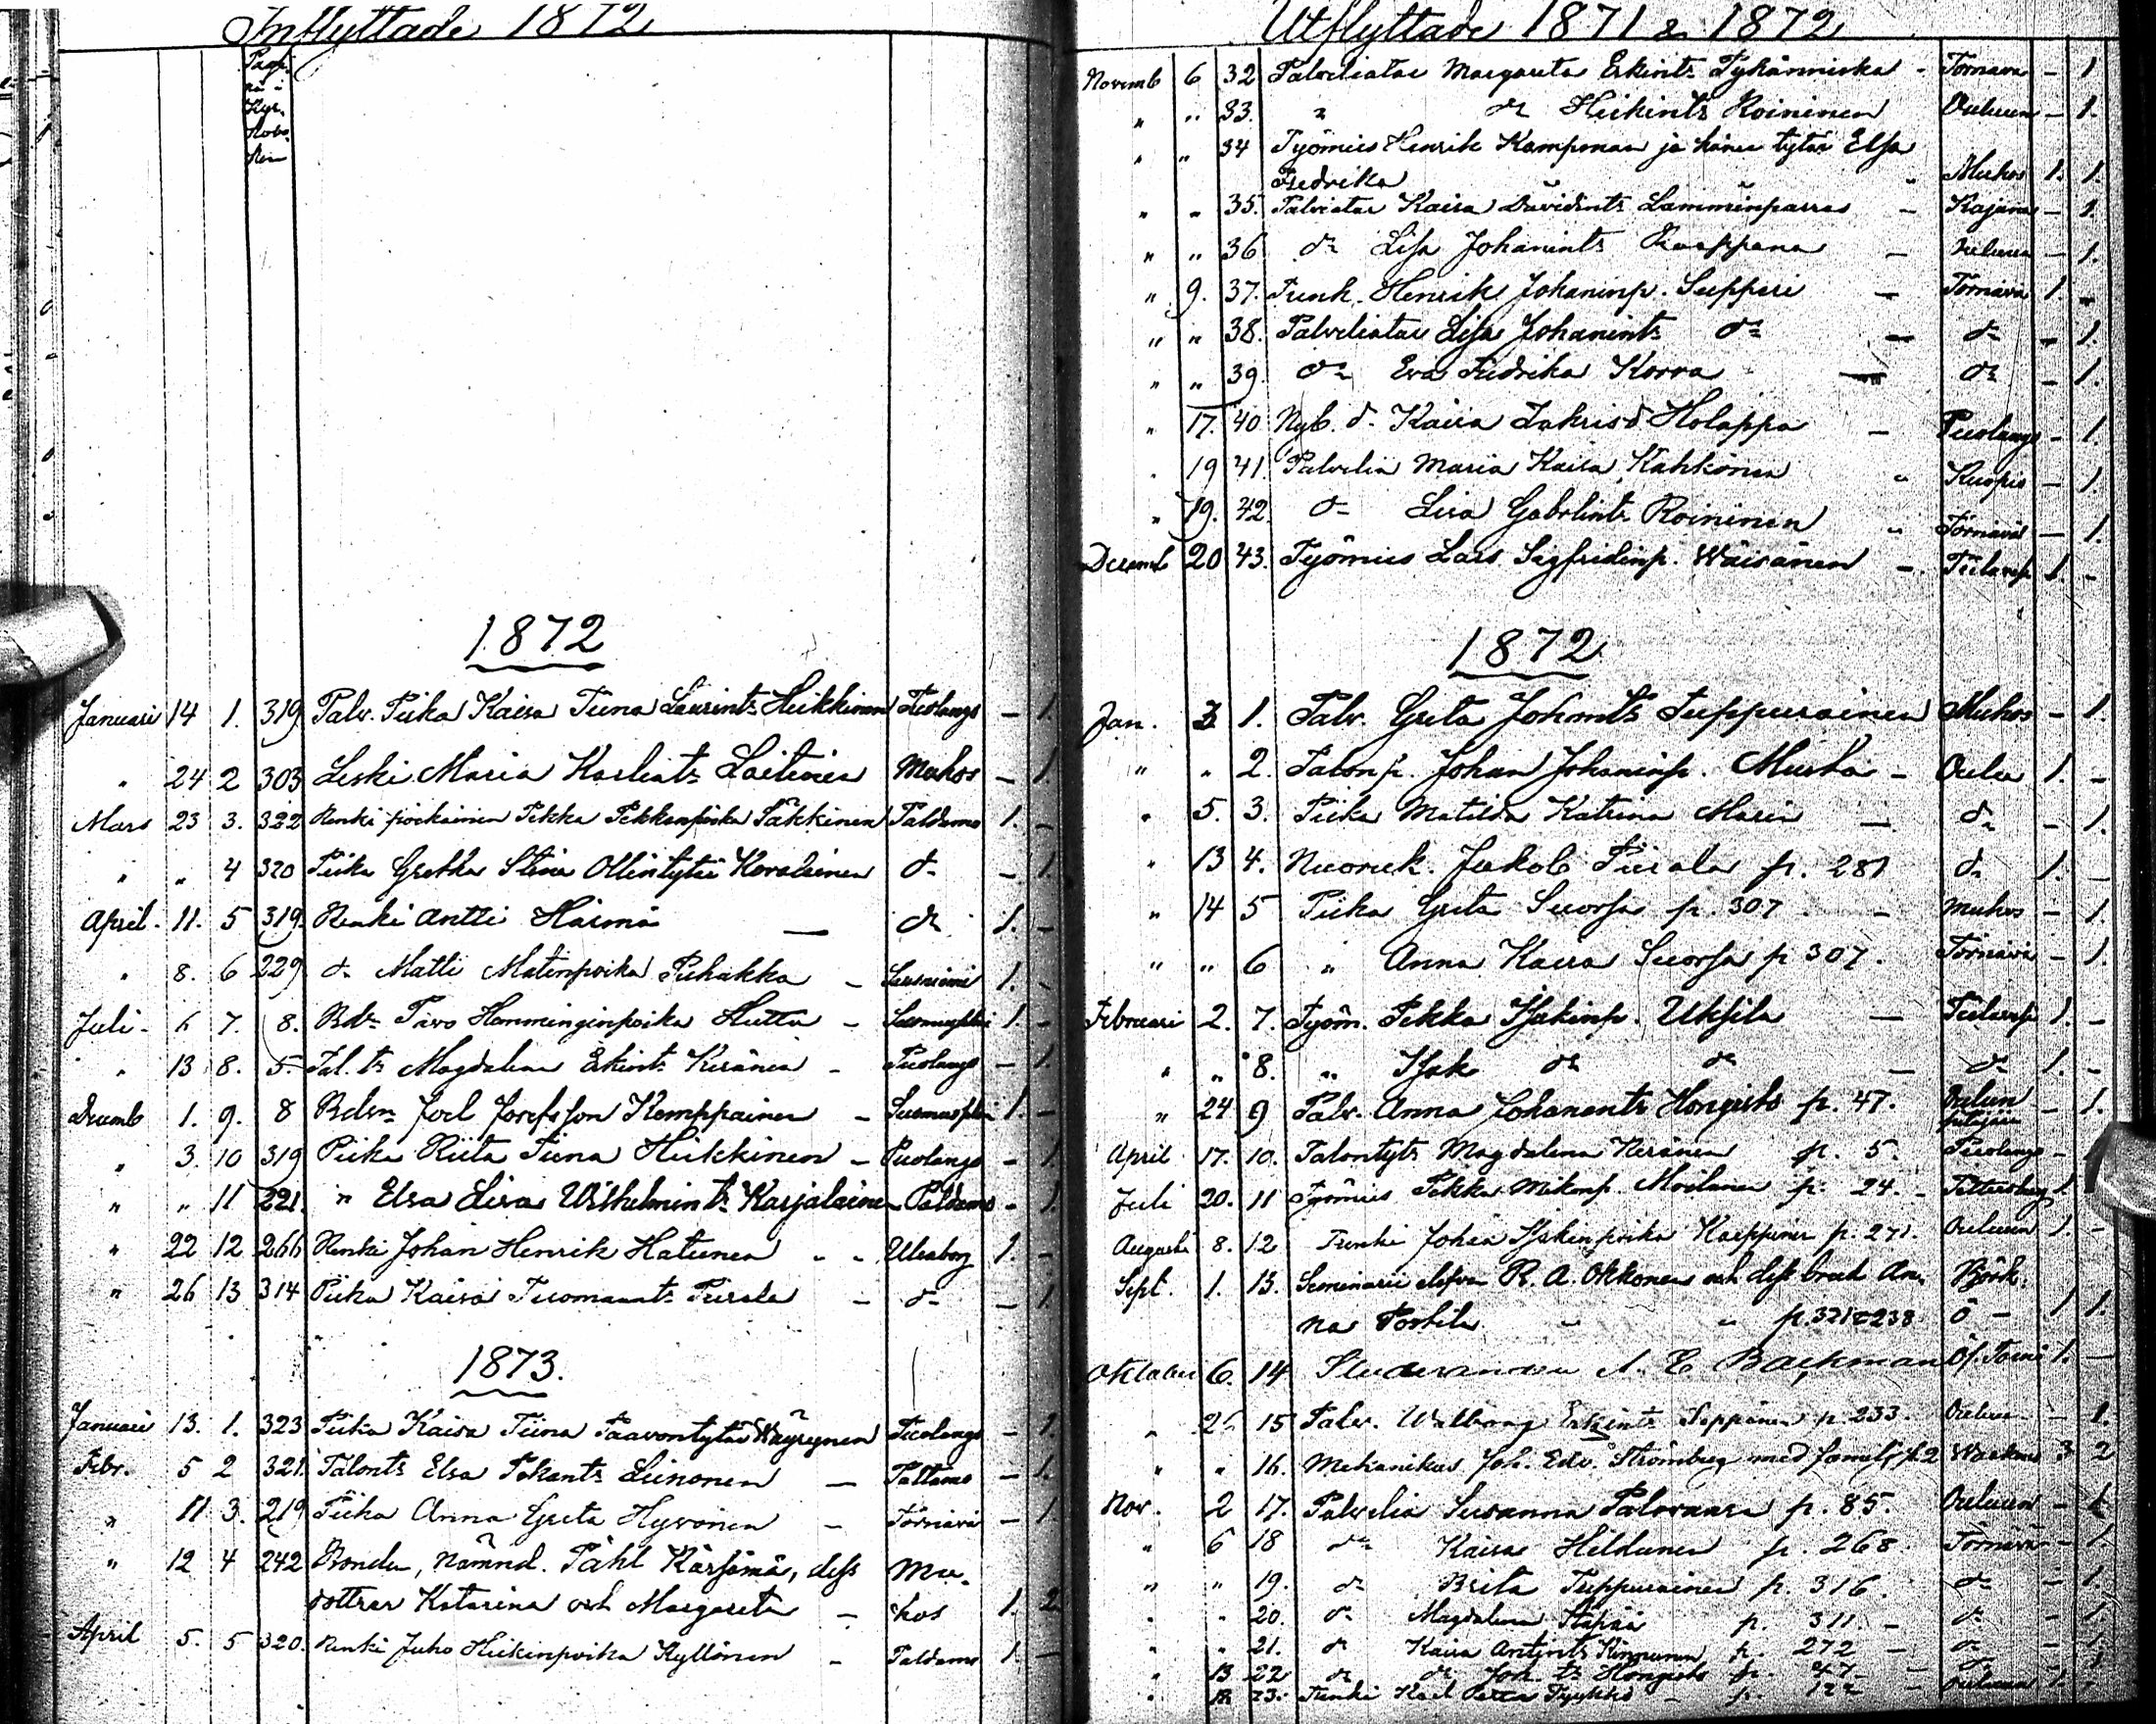 Inflyttade 1872
Pag.
Kyr.
Januari 14 1. 319 Palv. Piika Kaisa Tiina Laurints Heikkinen Puolango – 1.
" 24 2 303 Leski Maria Karlints Laitinen Muhos – 1.
Mars 23 3. 322 Renki poikainen Pekka Pekkanpoika Täkkinen Paldamo 1. –
" " 4 320 Piika Grethe Stina Ollintytär Kovalainen do – 1.
April 11. 5 319. Renki Antti Härmä – do 1. –
" 8. 6 229 do Matti Matinpoika Puhakka – 1. –
Juli 6 7. 8. Bdn Paavo Hemminginpoika Hutta – 1. –
" 13 8. 5. Tal. ts Magdalena Erkints Keränen – Puolango – 1.
Decemb 1. 9. 8 Bdsn Joel Josefsson Kemppainen – 1. –
" 3. 10 319 Piika Riita Tiina Heikkinen – Puolango – 1.
" " 11 221. " Elsa Liisa Wilhelmints Karjalainen Paldamo – 1.
" 22 12 266 Renki Johan Henrik Hatunen – Uleaborg 1. –
" 26 13 314 Piika Kaisa Tuomaants Piirala – do – 1.
1873.
Januari 13. 1. 323 Piika Kaisa Tiina Paavontytär Wäyrynen Puolango – 1.
Febr. 5 2 321. Talonts Elsa Pekants Leinonen – Paltamo – 1.
" 11 3. 219 Piika Anna Greta Hyvönen – Törnävä – 1.
" 12 4 242 Bonden, Nämnd. Påhl Kärsämä, dess Mu-
döttrar Katarina och Margareta – hos 1. 2
April 5. 5 320. Renki Juho Heikinpoika Kyllönen – Paldamo 1. –
Utflyttade 1871 & 1872
Novemb 6 32 Palveliatar Margareta Erkints Tykänniska – Törnävä – 1
" " 33. " do Heikints Roininen Oulun – 1.
" " 34 Työmies Henrik Kampman ja hänen tytär Elsa
Fredrika Muhos 1. 1.
" " 35. Palviatar Kaisa Davidints Lamminparras – Kajana – 1.
" " 36 do Lisa Johanints Karppana – Oulun – 1.
" 9. 37. Trenk. Henrik Johaninp. Supperi – Törnävä 1. –
" " 38. Palveliatar Lisa Johanints do – do – 1.
" " 39. do Eva Fredrika Korva – do – 1.
" 17. 40 Nyb. d. Kaisa Zakrisd Holappa – Puolango – 1.
" 19 41. Palvelia Maria Kaisa Kähkönen " Kuopio – 1.
" 19. 42. do Liisa Gabrlints Roininen " Törnävä – 1.
Decemb 20 43. Työmies Lars Sigfridinp. Wäisänen – 1. –
1872
Jan. 3 1. Palv. Greta Johants Tuppurainen Muhos – 1.
" " 2. Talonp. Johan Johaninp. Musta – Oulu 1. –
" 5. 3. Piika Matilda Katrina Marin – do – 1.
" 13 4. Nuoruk. Jakob Piirala p. 281 do 1. –
" 14 5 Piika Greta Suorsa p. 307 – Muhos – 1.
" " 6 " Anna Kaisa Suorsa p 307. Törnävä – 1.
Februari 2. 7. Työm. Pekka Isakinp. Uksila – 1. –
" " 8. " Isak do do – do 1. –
" 24 9 Palv. Anna Johanants Hongisto p. 47. Oulun
pitäjän – 1.
April 17. 10. Talontyts Magdalena Keränen p. 5. Puolango – 1
Juli 20. 11 Työmies Pekka Mikonp. Moilanen p. 24. – Pettersburg 1. –
Augusti 8. 12 Trenki Johan Isakinpoika Karppinen p. 271. Oulun 1. –
Sept. 1. 13. Seminarii eleven R. A. Okkonen och dess brud An- Björk-
na Portila " " p. 321 & 238 ö – 1 1.
Oktober 6. 14 Studeranden A. E. Backman Öf. Torneå 1. –
" 26 15 Palv. Walborg Erkints Seppänen p. 233. Oulun – 1.
" " 16. Mekanikus Joh. Edv. Strömberg med familj p. 2 3 2
Nov. 2 17. Palvelia Susanna Palovaara p. 85. Oulun – 1
" 6 18 do Kaisa Heldunen p. 268 Törnävä – 1.
" " 19. do Brita Tuppurainen p. 316 do – 1.
" " 20. do Magdalena p. 311. – do – 1
" " 21. do Kaisa Antints Kinnunen p. 272 – do – 1
" 13 22 do do Joh. ts Hongisto p. 47 – do – 1
" 23. Trenki Karl p. 122 – Oulun 1. –